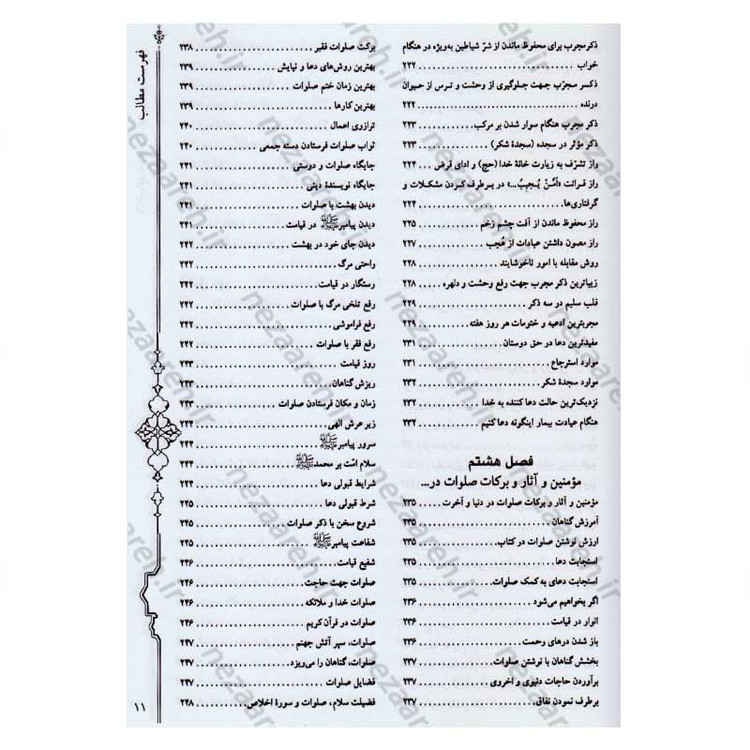 فهرست مطالب
ذکر مجرب برای محفوظ ماندن از شرّ شیاطین به‌ویژه در هنگام
خواب ........ ۲۲۲
ذکر مجرّب جهت جلوگیری از وحشت و ترس از حیوان
درنده ........ ۲۲۲
ذکر مجرب هنگام سوار شدن بر مرکب ........ ۲۲۳
ذکر مؤثر در سجده (سجدهٔ شکر) ........ ۲۲۳
راز تشرّف به زیارت خانهٔ خدا (حج) و ادای قرض ... ۲۲۴
راز قرائت «اَمَّنْ یُجیبُ...» در برطرف کردن مشکلات و
گرفتاری‌ها ........ ۲۲۴
راز محفوظ ماندن از آفت چشم زخم ........ ۲۲۵
راز مصون داشتن عبادات از عُجب ........ ۲۲۷
روش مقابله با امور ناخوشایند ........ ۲۲۸
زیباترین ذکر مجرب جهت رفع وحشت و دلهره ... ۲۲۸
قلب سلیم در سه ذکر ........ ۲۲۹
مجربترین ادعیه و ختومات هر روز هفته ........ ۲۲۹
مفیدترین دعا در حق دوستان ........ ۲۳۱
موارد استرجاع ........ ۲۳۱
موارد سجدهٔ شکر ........ ۲۳۲
نزدیک‌ترین حالت دعا کننده به خدا ........ ۲۳۲
هنگام عیادت بیمار اینگونه دعا کنیم ........ ۲۳۲
فصل هشتم
مؤمنین و آثار و برکات صلوات در...
مؤمنین و آثار و برکات صلوات در دنیا و آخرت ... ۲۳۵
آمرزش گناهان ........ ۲۳۵
ارزش نوشتن صلوات در کتاب ........ ۲۳۵
استجابت دعا ........ ۲۳۵
استجابت دعای به کمک صلوات ........ ۲۳۵
اگر بخواهیم می‌شود ........ ۲۳۶
انوار در قیامت ........ ۲۳۶
باز شدن درهای رحمت ........ ۲۳۶
بخشش گناهان با نوشتن صلوات ........ ۲۳۷
برآوردن حاجات دنیوی و اخروی ........ ۲۳۷
برطرف نمودن نفاق ........ ۲۳۷
برکت صلوات فقیر ........ ۲۳۸
بهترین روش‌های دعا و نیایش ........ ۲۳۹
بهترین زمان ختم صلوات ........ ۲۳۹
بهترین کارها ........ ۲۳۹
ترازوی اعمال ........ ۲۴۰
ثواب صلوات فرستادن دسته جمعی ........ ۲۴۰
جایگاه صلوات و دوستی ........ ۲۴۱
جایگاه نویسندهٔ دینی ........ ۲۴۱
دیدن بهشت با صلوات ........ ۲۴۱
دیدن پیامبر ﷺ در قیامت ........ ۲۴۱
دیدن جای خود در بهشت ........ ۲۴۲
راحتی مرگ ........ ۲۴۲
رستگار در قیامت ........ ۲۴۲
رفع تلخی مرگ با صلوات ........ ۲۴۲
رفع فراموشی ........ ۲۴۲
رفع فقر با صلوات ........ ۲۴۲
روز قیامت ........ ۲۴۳
ریزش گناهان ........ ۲۴۳
زمان و مکان فرستادن صلوات ........ ۲۴۳
زیر عرش الهی ........ ۲۴۴
سرور پیامبر ﷺ ........ ۲۴۴
سلام امّت بر محمد ﷺ ........ ۲۴۴
شرایط قبولی دعا ........ ۲۴۴
شرط قبولی دعا ........ ۲۴۵
شروع سخن با ذکر صلوات ........ ۲۴۵
شفاعت پیامبر ﷺ ........ ۲۴۵
شفیع قیامت ........ ۲۴۶
صلوات جهت حاجت ........ ۲۴۶
صلوات خدا و ملائکه ........ ۲۴۶
صلوات در قرآن کریم ........ ۲۴۶
صلوات، سپر آتش جهنم ........ ۲۴۷
صلوات، گناهان را می‌ریزد ........ ۲۴۷
فضایل صلوات ........ ۲۴۷
فضیلت سلام، صلوات و سورهٔ اخلاص ........ ۲۴۸
۱۱
nezaareh.ir